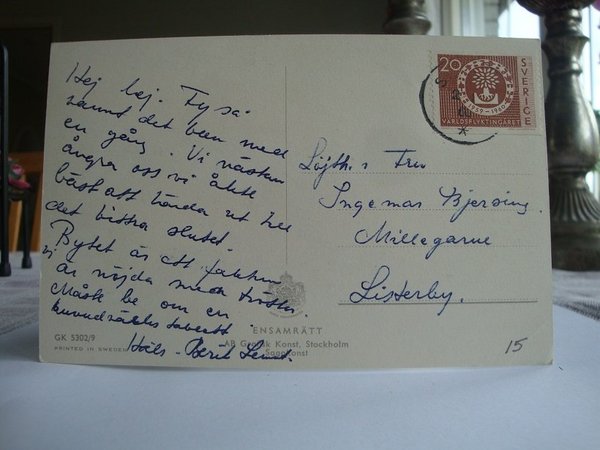 Hej hej. Fy så
vaunt det been med
en gång. Vi nästan
ångra oss vi åkte
bäst att härda ut till
det bittra slutet.
Bytet är ett faktum
vi är nöjda med trots
Måste be om en
huvudvärkstablett
Häls - Berit
GK 5302/9
PRINTED IN SWEDEN
ENSAMRÄTT
AB Grafisk Konst, Stockholm
Sagokonst
20
SVERIGE
1959-1960
VÄRLDSFLYKTINGÅRET
Löjtn. o Fru
Ingemar Bjersing.
Millegarne
Listerby.
15